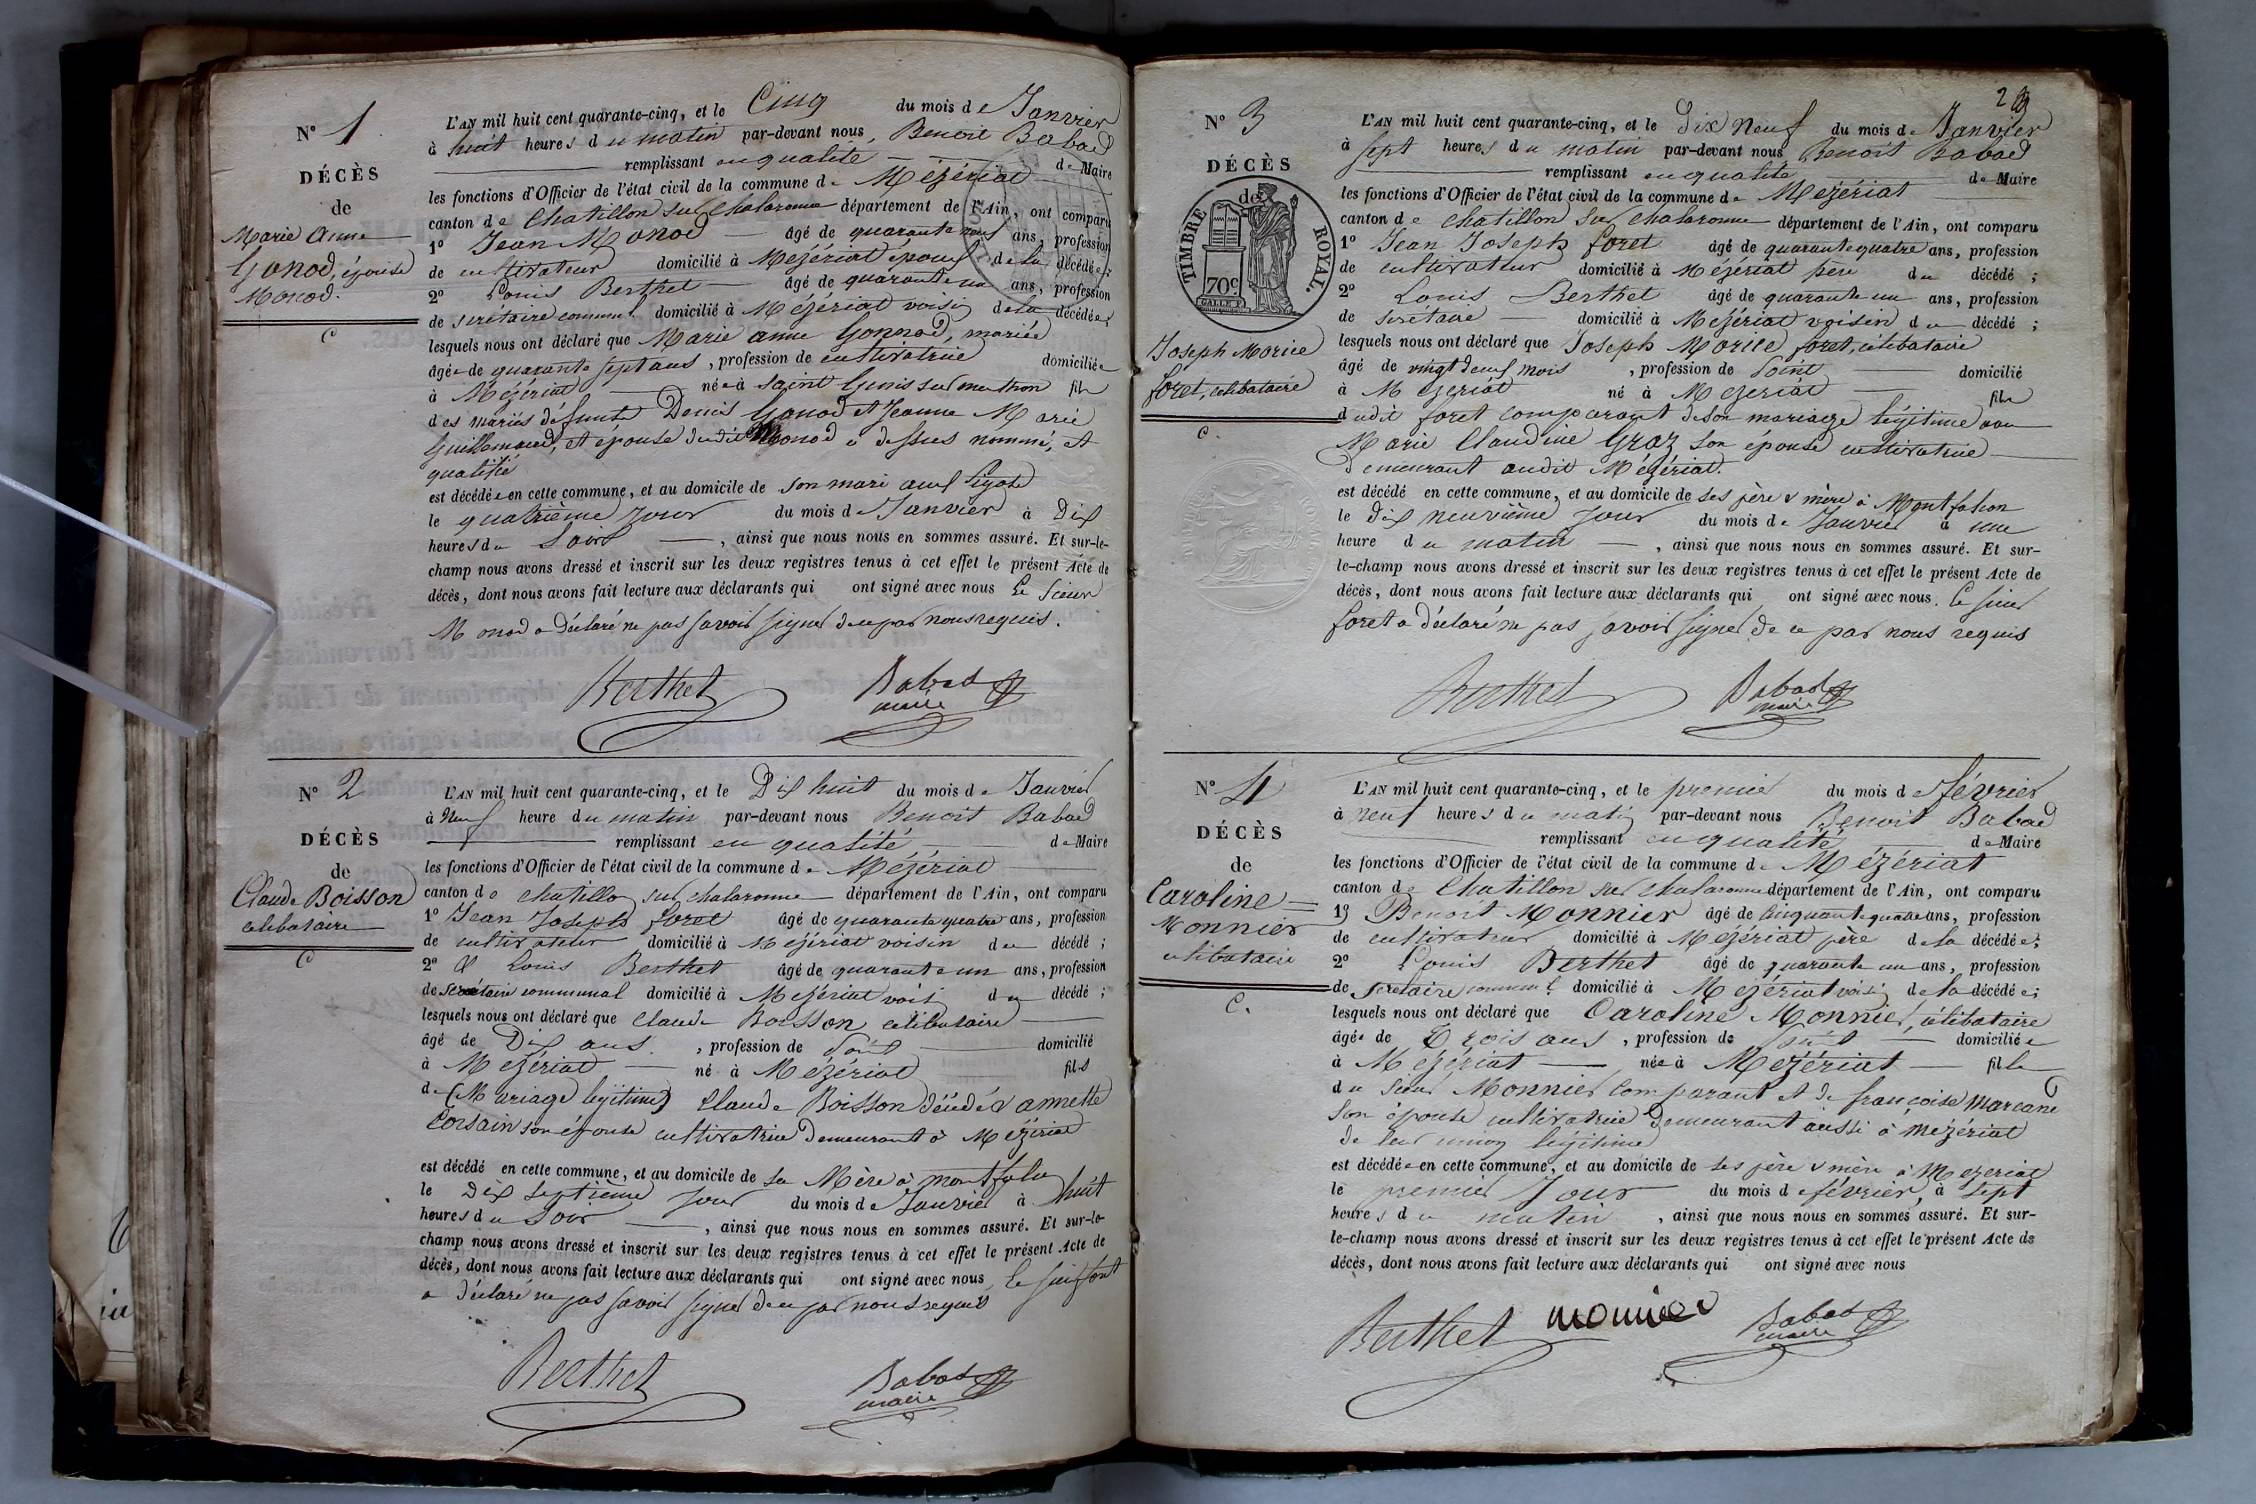 N° 1
DÉCÈS
de
Marie Anne
Gonod, épouse
Monod.
C
L'AN mil huit cent quarante-cinq, et le Cinq du mois de Janvier
à huit heures du matin par-devant nous, Benoit Babad
remplissant en qualité de Maire
les fonctions d'Officier de l'état civil de la commune de Mézériat
canton de Chatillon sur Chalaronne département de l'Ain, ont comparu
1° Jean Monod âgé de quarante neuf ans, profession
de cultivateur domicilié à Mézériat époux de la décédée;
2° Louis Berthet âgé de quarante un ans, profession
de secretaire communl domicilié à Mézériat voisin de la décédée;
lesquels nous ont déclaré que Marie anne Gonnod, mariée
âgée de quarante sept ans, profession de cultivatrice domiciliée
à Mézériat née à saint Genis sur menthon fille
des mariés défunts Denis Gonod et Jeanne Marie
Guillemaud, et épouse dudit Monod ci dessus nommé, et
qualifié
est décédée en cette commune, et au domicile de son mari aux
le quatrième jour du mois de Janvier à Dix
heures du Soir, ainsi que nous nous en sommes assuré. Et sur-le-
champ nous avons dressé et inscrit sur les deux registres tenus à cet effet le présent Acte de
décès, dont nous avons fait lecture aux déclarants qui ont signé avec nous Le Sieur
Monod a déclaré ne pas savoir signer de ce par nous requis.
Berthet Babad
maire
N° 2
DÉCÈS
de
Claude Boisson
célibataire
C
L'AN mil huit cent quarante-cinq, et le Dix huit du mois de Janvier
à Neuf heure du matin par-devant nous Benoit Babad
remplissant en qualité de Maire
les fonctions d'Officier de l'état civil de la commune de Mézériat
canton de chatillon sur chalaronne département de l'Ain, ont comparu
1° Jean Joseph foret âgé de quarante quatre ans, profession
de cultivateur domicilié à Mézériat voisin du décédé;
2° Louis Berthet âgé de quarante un ans, profession
de secrétaire communal domicilié à Mézériat voisin du décédé;
lesquels nous ont déclaré que Claude Boisson célibataire
âgé de Dix ans., profession de Point domicilié
à Mézériat né à Mézériat fils
de (Mariage légitime) Claude Boisson décédé & annette
Corsain son épouse cultivatrice Demeurant à Mézériat
est décédé en cette commune, et au domicile de sa Mère à montfalcon
le Dix septième jour du mois de Janvier à huit
heures du Soir, ainsi que nous nous en sommes assuré. Et sur-le-
champ nous avons dressé et inscrit sur les deux registres tenus à cet effet le présent Acte de
décès, dont nous avons fait lecture aux déclarants qui ont signé avec nous Le sieur foret
a déclaré ne pas savoir signer de ce par nous requis
Berthet Babad
maire
2
N° 3
DÉCÈS
de
TIMBRE ROYAL.
70c.
Joseph Morice
foret, célibataire
C.
L'AN mil huit cent quarante-cinq, et le Dix Neuf du mois de Janvier
à sept heures du matin par-devant nous Benoit Babad
remplissant en qualité de Maire
les fonctions d'Officier de l'état civil de la commune de Mézériat
canton de chatillon sur chalaronne département de l'Ain, ont comparu
1° Jean Joseph foret âgé de quarante quatre ans, profession
de cultivateur domicilié à Mézériat père du décédé;
2° Louis Berthet âgé de quarante un ans, profession
de secrétaire domicilié à Mézériat voisin du décédé;
lesquels nous ont déclaré que Joseph Morice foret, célibataire
âgé de vingt deux mois, profession de Point domicilié
à Mézériat né à Mézériat fils
dudit foret comparant de son mariage légitime avec
Marie Claudine Graz son épouse cultivatrice
Demeurant audit Mézériat.
est décédé en cette commune, et au domicile de ses père & mère à Montfalcon
le Dix neuvième jour du mois de Janvier à une
heure du matin, ainsi que nous nous en sommes assuré. Et sur-
le-champ nous avons dressé et inscrit sur les deux registres tenus à cet effet le présent Acte de
décès, dont nous avons fait lecture aux déclarants qui ont signé avec nous. Le sieur
foret a déclaré ne pas savoir signer de ce par nous requis
Berthet Babad
maire
N° 4
DÉCÈS
de
Caroline
Monnier
célibataire
C.
L'AN mil huit cent quarante-cinq, et le premier du mois de février
à neuf heures du matin par-devant nous Benoit Babad
remplissant en qualité de Maire
les fonctions d'Officier de l'état civil de la commune de Mézériat
canton de Chatillon sur Chalaronne département de l'Ain, ont comparu
1° Benoit Monnier âgé de Cinquante quatre ans, profession
de cultivateur domicilié à Mézériat père de la décédée;
2° Louis Berthet âgé de quarante un ans, profession
de secretaire communl domicilié à Mézériat voisin de la décédée;
lesquels nous ont déclaré que Caroline Monnier, célibataire
âgée de Trois ans, profession de Point domiciliée
à Mézériat née à Mézériat fille
du sieur Monnier comparant et de françoise Marcane
son épouse cultivatrice Demeurant aussi à Mézériat
de leur union légitime
est décédée en cette commune, et au domicile de ses père & mère à Mézériat
le premier jour du mois de février, à sept
heures du matin, ainsi que nous nous en sommes assuré. Et sur-
le-champ nous avons dressé et inscrit sur les deux registres tenus à cet effet le présent Acte de
décès, dont nous avons fait lecture aux déclarants qui ont signé avec nous
Berthet monnier Babad
maire